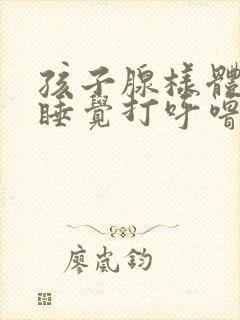 孩子腺樣體
睡覺打呼嚕
廖嵐鈞